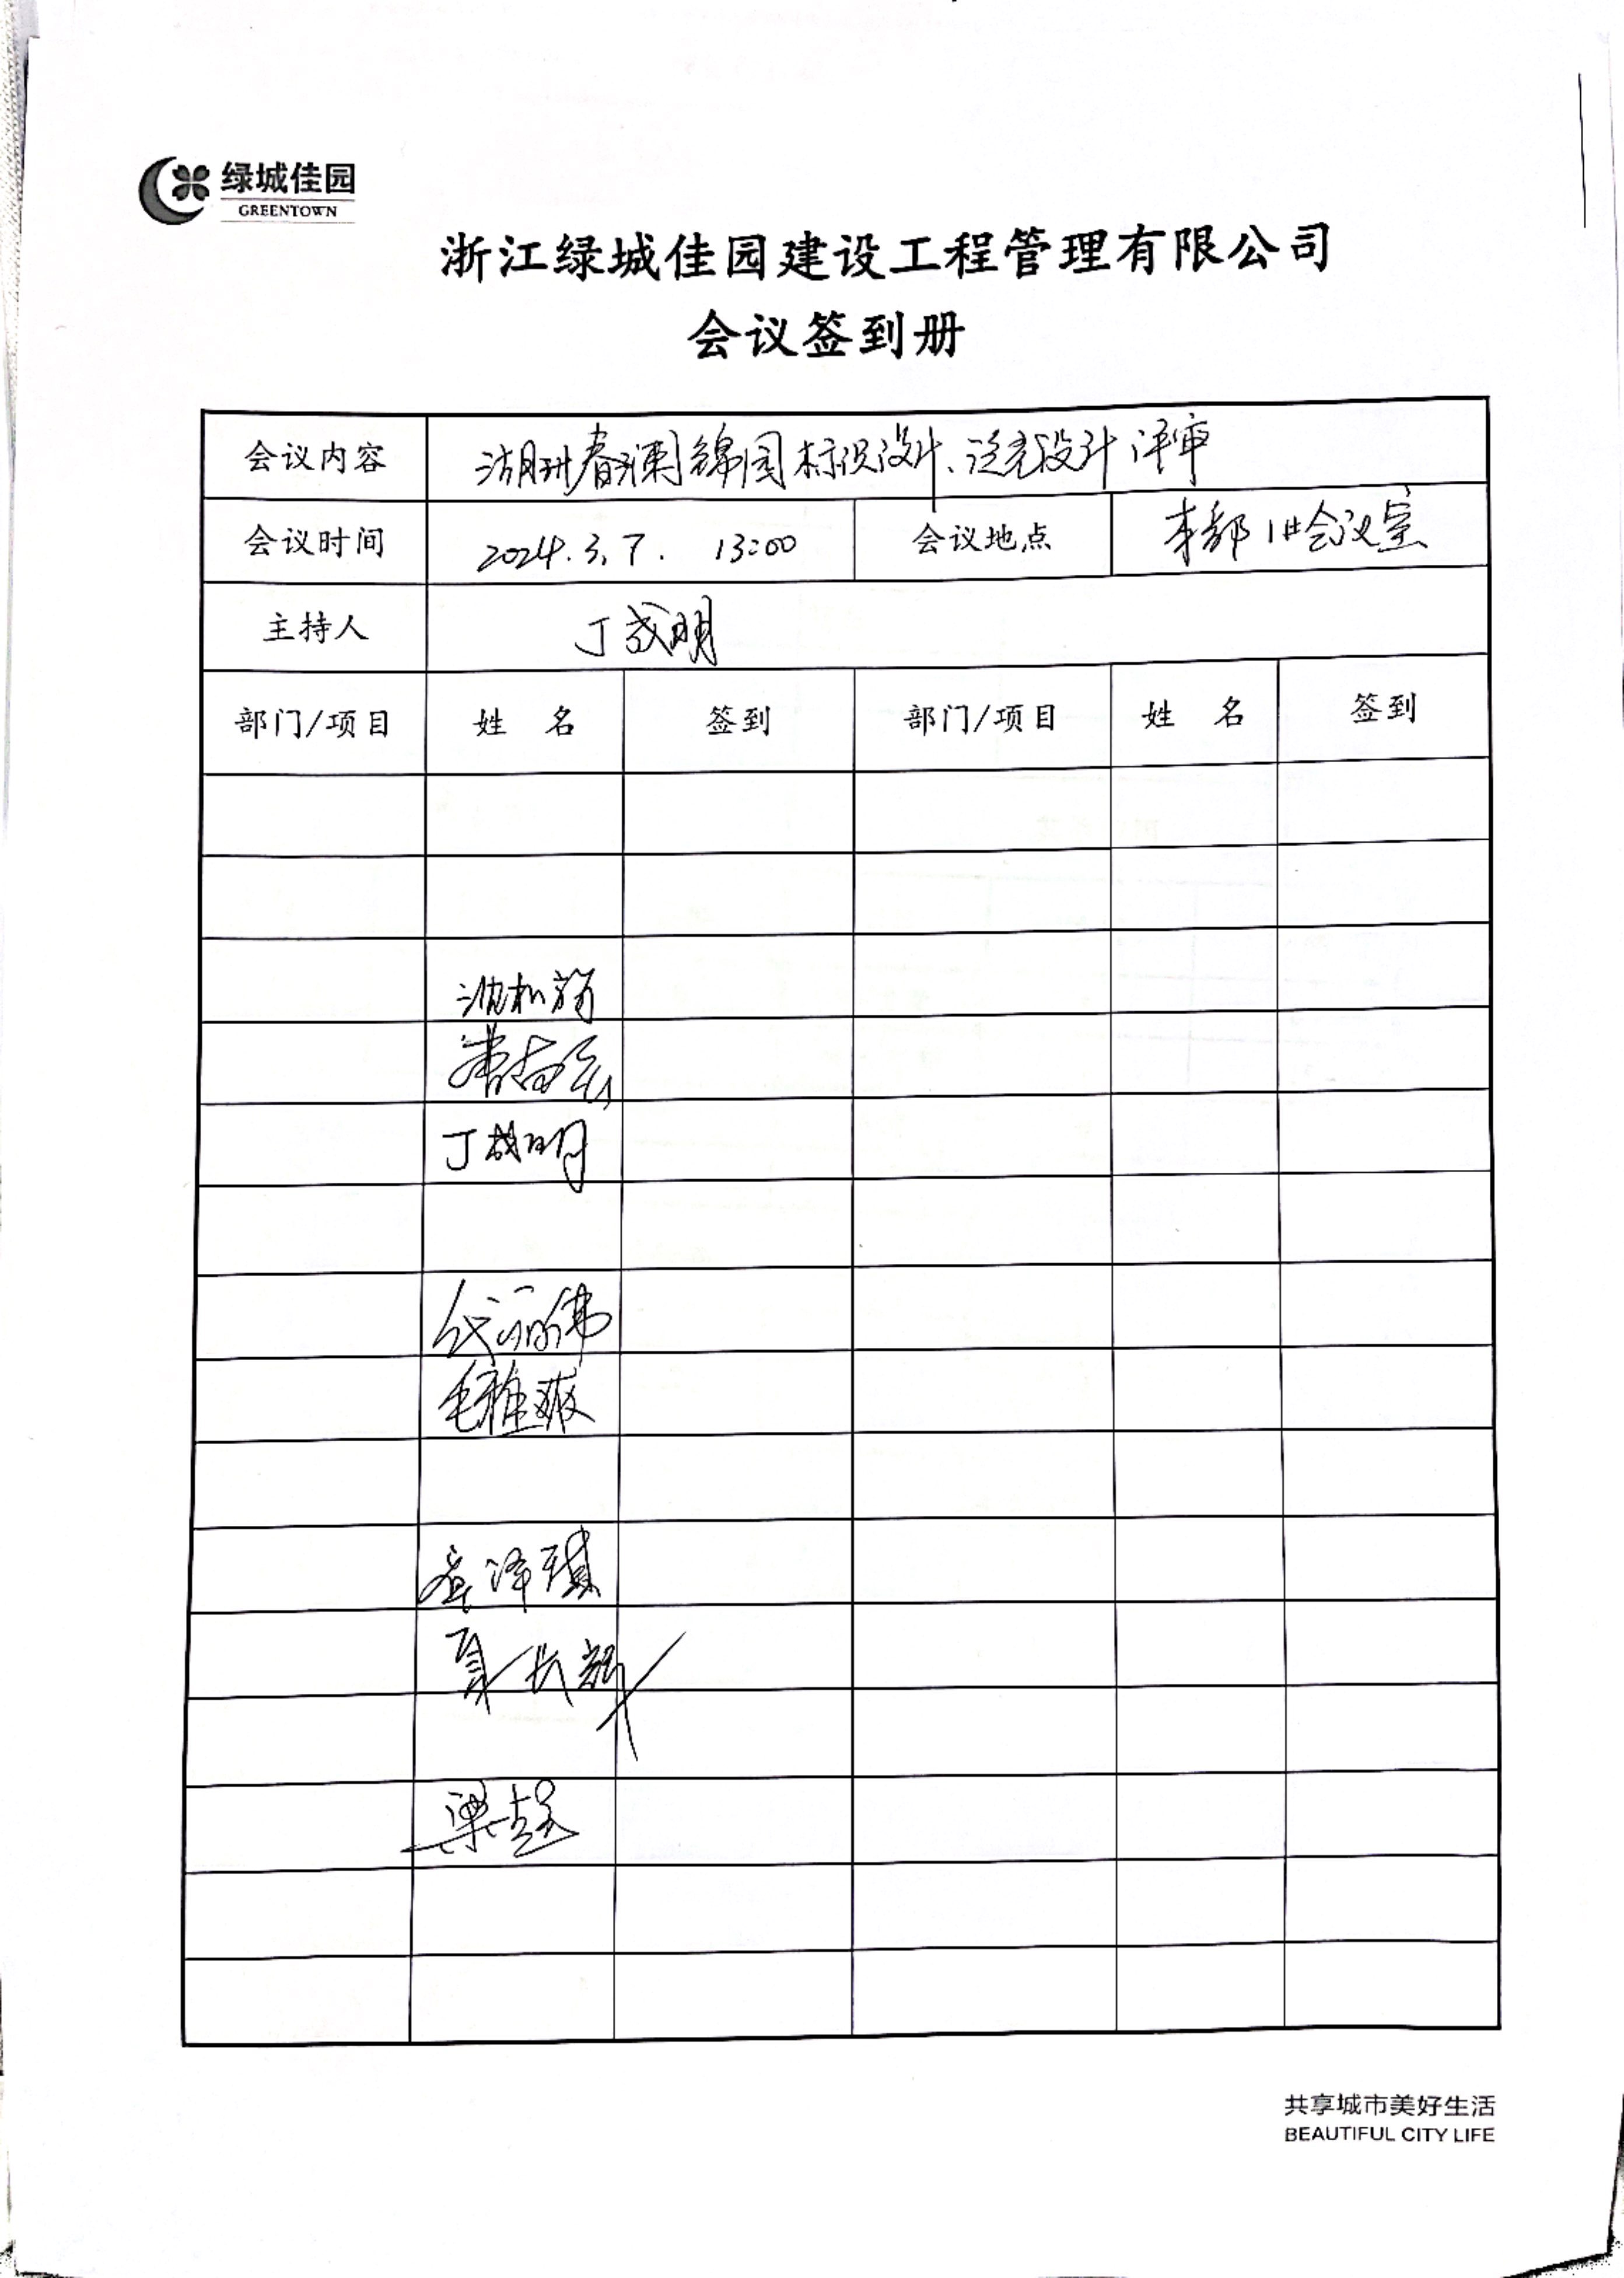 绿城佳园
GREENTOWN
浙江绿城佳园建设工程管理有限公司
会议签到册
会议内容 湖州春澜锦园标识设计、泛光设计评审
会议时间 2024.3.7. 13:00 会议地点 本部1#会议室
主持人 丁成明
部门/项目 姓 名 签到 部门/项目 姓 名 签到
沈松
丁成明
代丽伟
毛雅爽
泽琪
夏长
梁超
共享城市美好生活
BEAUTIFUL CITY LIFE